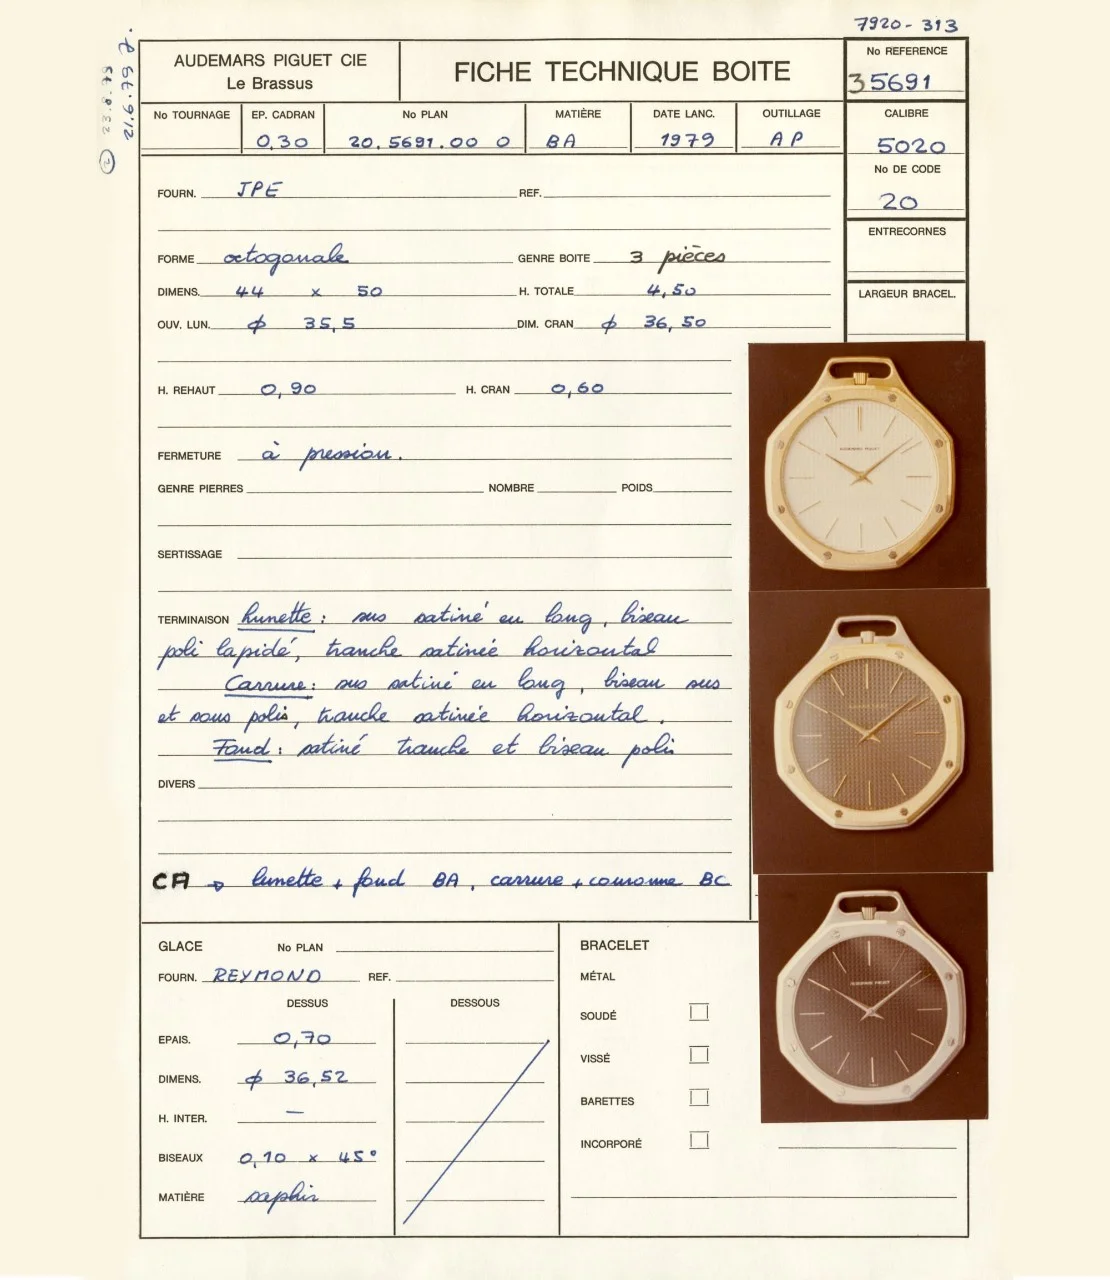 7920-313
AUDEMARS PIGUET CIE
Le Brassus
FICHE TECHNIQUE BOITE
No REFERENCE
35691
No TOURNAGE
EP. CADRAN
0,30
No PLAN
20.5691.00 0
MATIÈRE
BA
DATE LANC.
1979
OUTILLAGE
AP
CALIBRE
5020
No DE CODE
20
ENTRECORNES
LARGEUR BRACEL.
FOURN. JPE REF.
FORME octogonale GENRE BOITE 3 pièces
DIMENS. 44 x 50 H. TOTALE 4,50
OUV. LUN. ϕ 35,5 DIM. CRAN ϕ 36,50
H. REHAUT 0,90 H. CRAN 0,60
FERMETURE à pression.
GENRE PIERRES NOMBRE POIDS
SERTISSAGE
TERMINAISON Lunette : sus satiné en long, biseau
poli lapidé, tranche satinée horizontal
Carrure : sus satiné en long, biseau sus
et sous polis, tranche satinée horizontal.
Fond : satiné tranche et biseau polis
DIVERS
CA → lunette + fond BA, carrure + couronne BC
GLACE No PLAN
FOURN. REYMOND REF.
DESSUS DESSOUS
EPAIS. 0,70
DIMENS. ϕ 36,52
H. INTER. —
BISEAUX 0,10 x 45°
MATIÈRE saphir
BRACELET
MÉTAL
SOUDÉ
VISSÉ
BARETTES
INCORPORÉ
AUDEMARS PIGUET
AUDEMARS PIGUET